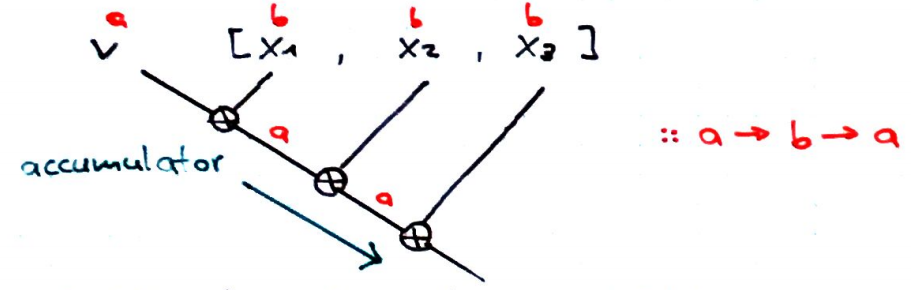 a b b b
v [x1 , x2 , x3 ]
a
:: a → b → a
accumulator
a